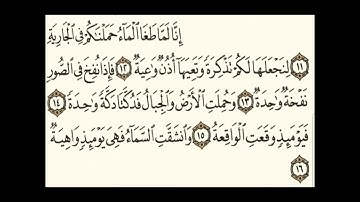 إِنَّا لَمَّا طَغَا ٱلْمَآءُ حَمَلْنَٰكُمْ فِى ٱلْجَارِيَةِ
١١ لِنَجْعَلَهَا لَكُمْ تَذْكِرَةً وَتَعِيَهَآ أُذُنٌ وَٰعِيَةٌ ١٢ فَإِذَا نُفِخَ فِى ٱلصُّورِ
نَفْخَةٌ وَٰحِدَةٌ ١٣ وَحُمِلَتِ ٱلْأَرْضُ وَٱلْجِبَالُ فَدُكَّتَا دَكَّةً وَٰحِدَةً ١٤
فَيَوْمَئِذٍ وَقَعَتِ ٱلْوَاقِعَةُ ١٥ وَٱنشَقَّتِ ٱلسَّمَآءُ فَهِىَ يَوْمَئِذٍ وَاهِيَةٌ
١٦